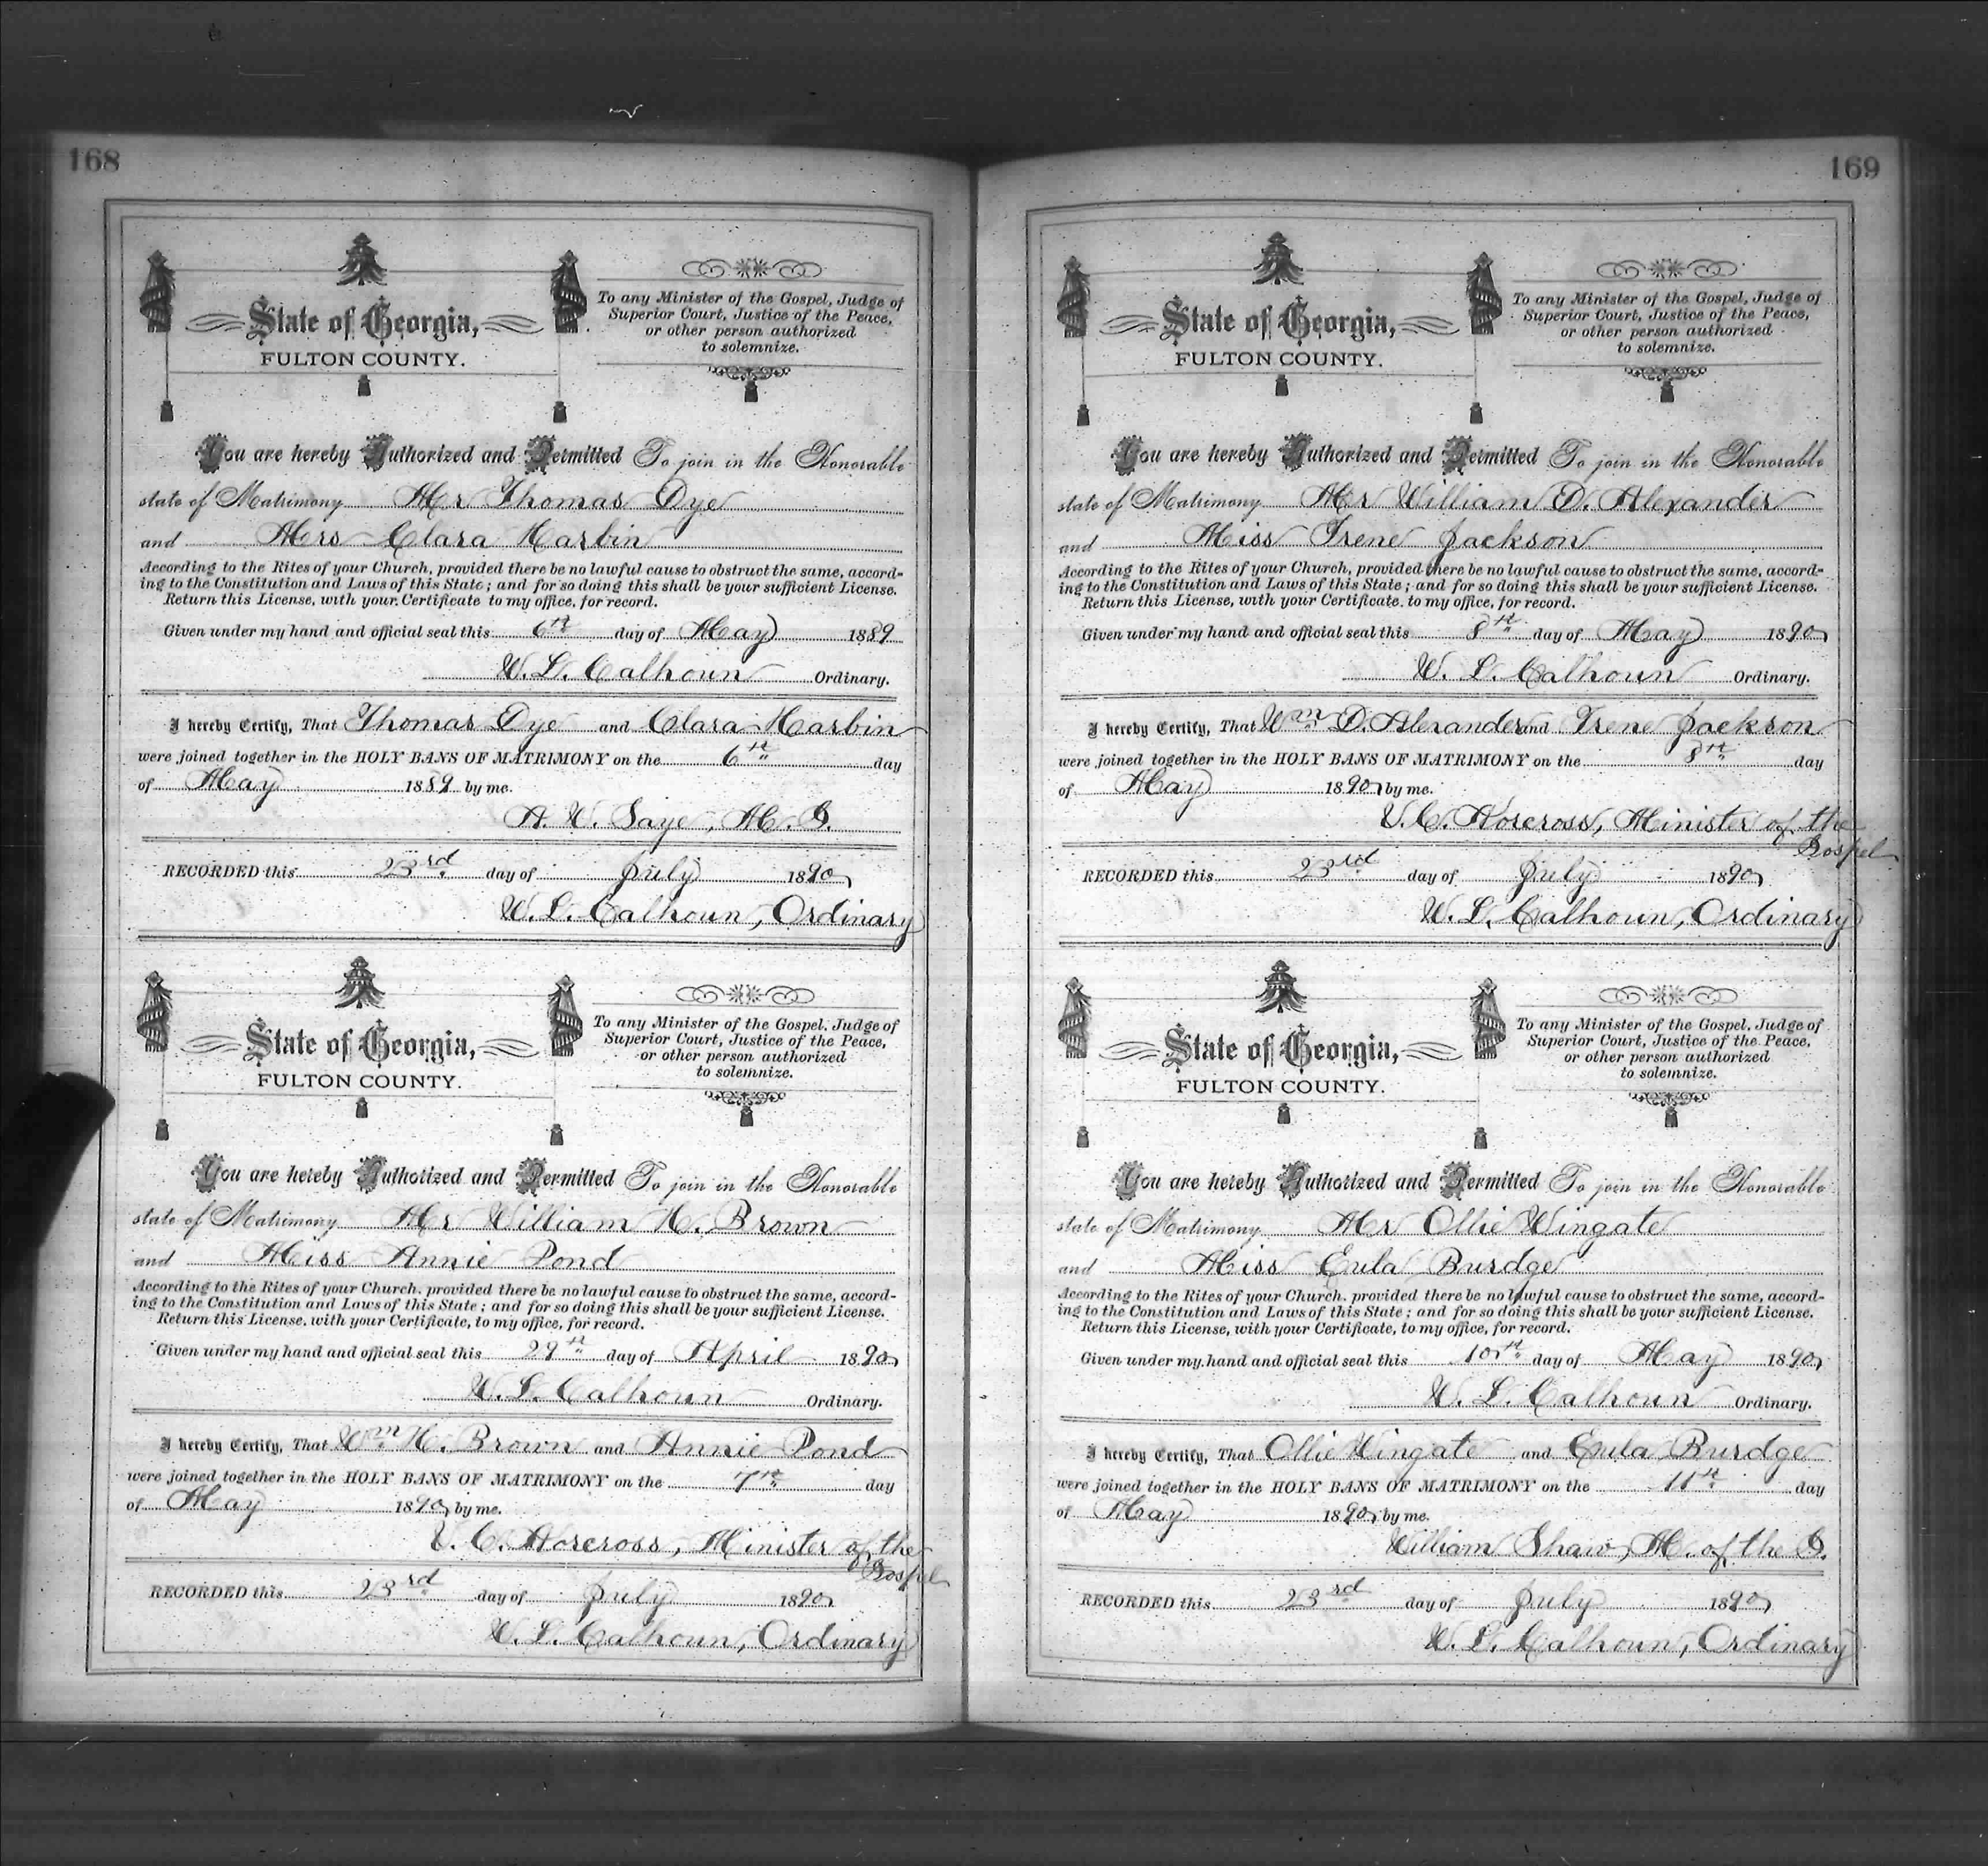 168
State of Georgia,
FULTON COUNTY.
To any Minister of the Gospel, Judge of
Superior Court, Justice of the Peace,
or other person authorized
to solemnize.
You are hereby Authorized and Permitted To join in the Honorable
state of Matrimony Mr Thomas Dye
and Mrs Clara Harbin
According to the Rites of your Church, provided there be no lawful cause to obstruct the same, accord-
ing to the Constitution and Laws of this State; and for so doing this shall be your sufficient License.
Return this License, with your Certificate to my office, for record.
Given under my hand and official seal this 6th day of May 1889
W. L. Calhoun Ordinary.
I hereby Certify, That Thomas Dye and Clara Harbin
were joined together in the HOLY BANS OF MATRIMONY on the 6th day
of May 1889 by me.
A. W. Saye, M. G.
RECORDED this 23rd day of July 1890
W. L. Calhoun, Ordinary
State of Georgia,
FULTON COUNTY.
To any Minister of the Gospel, Judge of
Superior Court, Justice of the Peace,
or other person authorized
to solemnize.
You are hereby Authorized and Permitted To join in the Honorable
state of Matrimony Mr William H. Brown
and Miss Annie Pond
According to the Rites of your Church, provided there be no lawful cause to obstruct the same, accord-
ing to the Constitution and Laws of this State; and for so doing this shall be your sufficient License.
Return this License, with your Certificate, to my office, for record.
Given under my hand and official seal this 29th day of April 1890
W. L. Calhoun Ordinary.
I hereby Certify, That Wm H. Brown and Annie Pond
were joined together in the HOLY BANS OF MATRIMONY on the 7th day
of May 1890 by me.
V. C. Norcross, Minister of the
Gospel
RECORDED this 23rd day of July 1890
W. L. Calhoun, Ordinary
169
State of Georgia,
FULTON COUNTY.
To any Minister of the Gospel, Judge of
Superior Court, Justice of the Peace,
or other person authorized
to solemnize.
You are hereby Authorized and Permitted To join in the Honorable
state of Matrimony Mr William D. Alexander
and Miss Irene Jackson
According to the Rites of your Church, provided there be no lawful cause to obstruct the same, accord-
ing to the Constitution and Laws of this State; and for so doing this shall be your sufficient License.
Return this License, with your Certificate, to my office, for record.
Given under my hand and official seal this 8th day of May 1890
W. L. Calhoun Ordinary.
I hereby Certify, That Wm D. Alexander and Irene Jackson
were joined together in the HOLY BANS OF MATRIMONY on the 8th day
of May 1890 by me.
V. C. Norcross, Minister of the
Gospel
RECORDED this 23rd day of July 1890
W. L. Calhoun, Ordinary
State of Georgia,
FULTON COUNTY.
To any Minister of the Gospel, Judge of
Superior Court, Justice of the Peace,
or other person authorized
to solemnize.
You are hereby Authorized and Permitted To join in the Honorable
state of Matrimony Mr Ollie Wingate
and Miss Eula Burdge
According to the Rites of your Church, provided there be no lawful cause to obstruct the same, accord-
ing to the Constitution and Laws of this State; and for so doing this shall be your sufficient License.
Return this License, with your Certificate, to my office, for record.
Given under my hand and official seal this 10th day of May 1890
W. L. Calhoun Ordinary.
I hereby Certify, That Ollie Wingate and Eula Burdge
were joined together in the HOLY BANS OF MATRIMONY on the 11th day
of May 1890 by me.
William Shaw, M. of the G.
RECORDED this 23rd day of July 1890
W. L. Calhoun, Ordinary